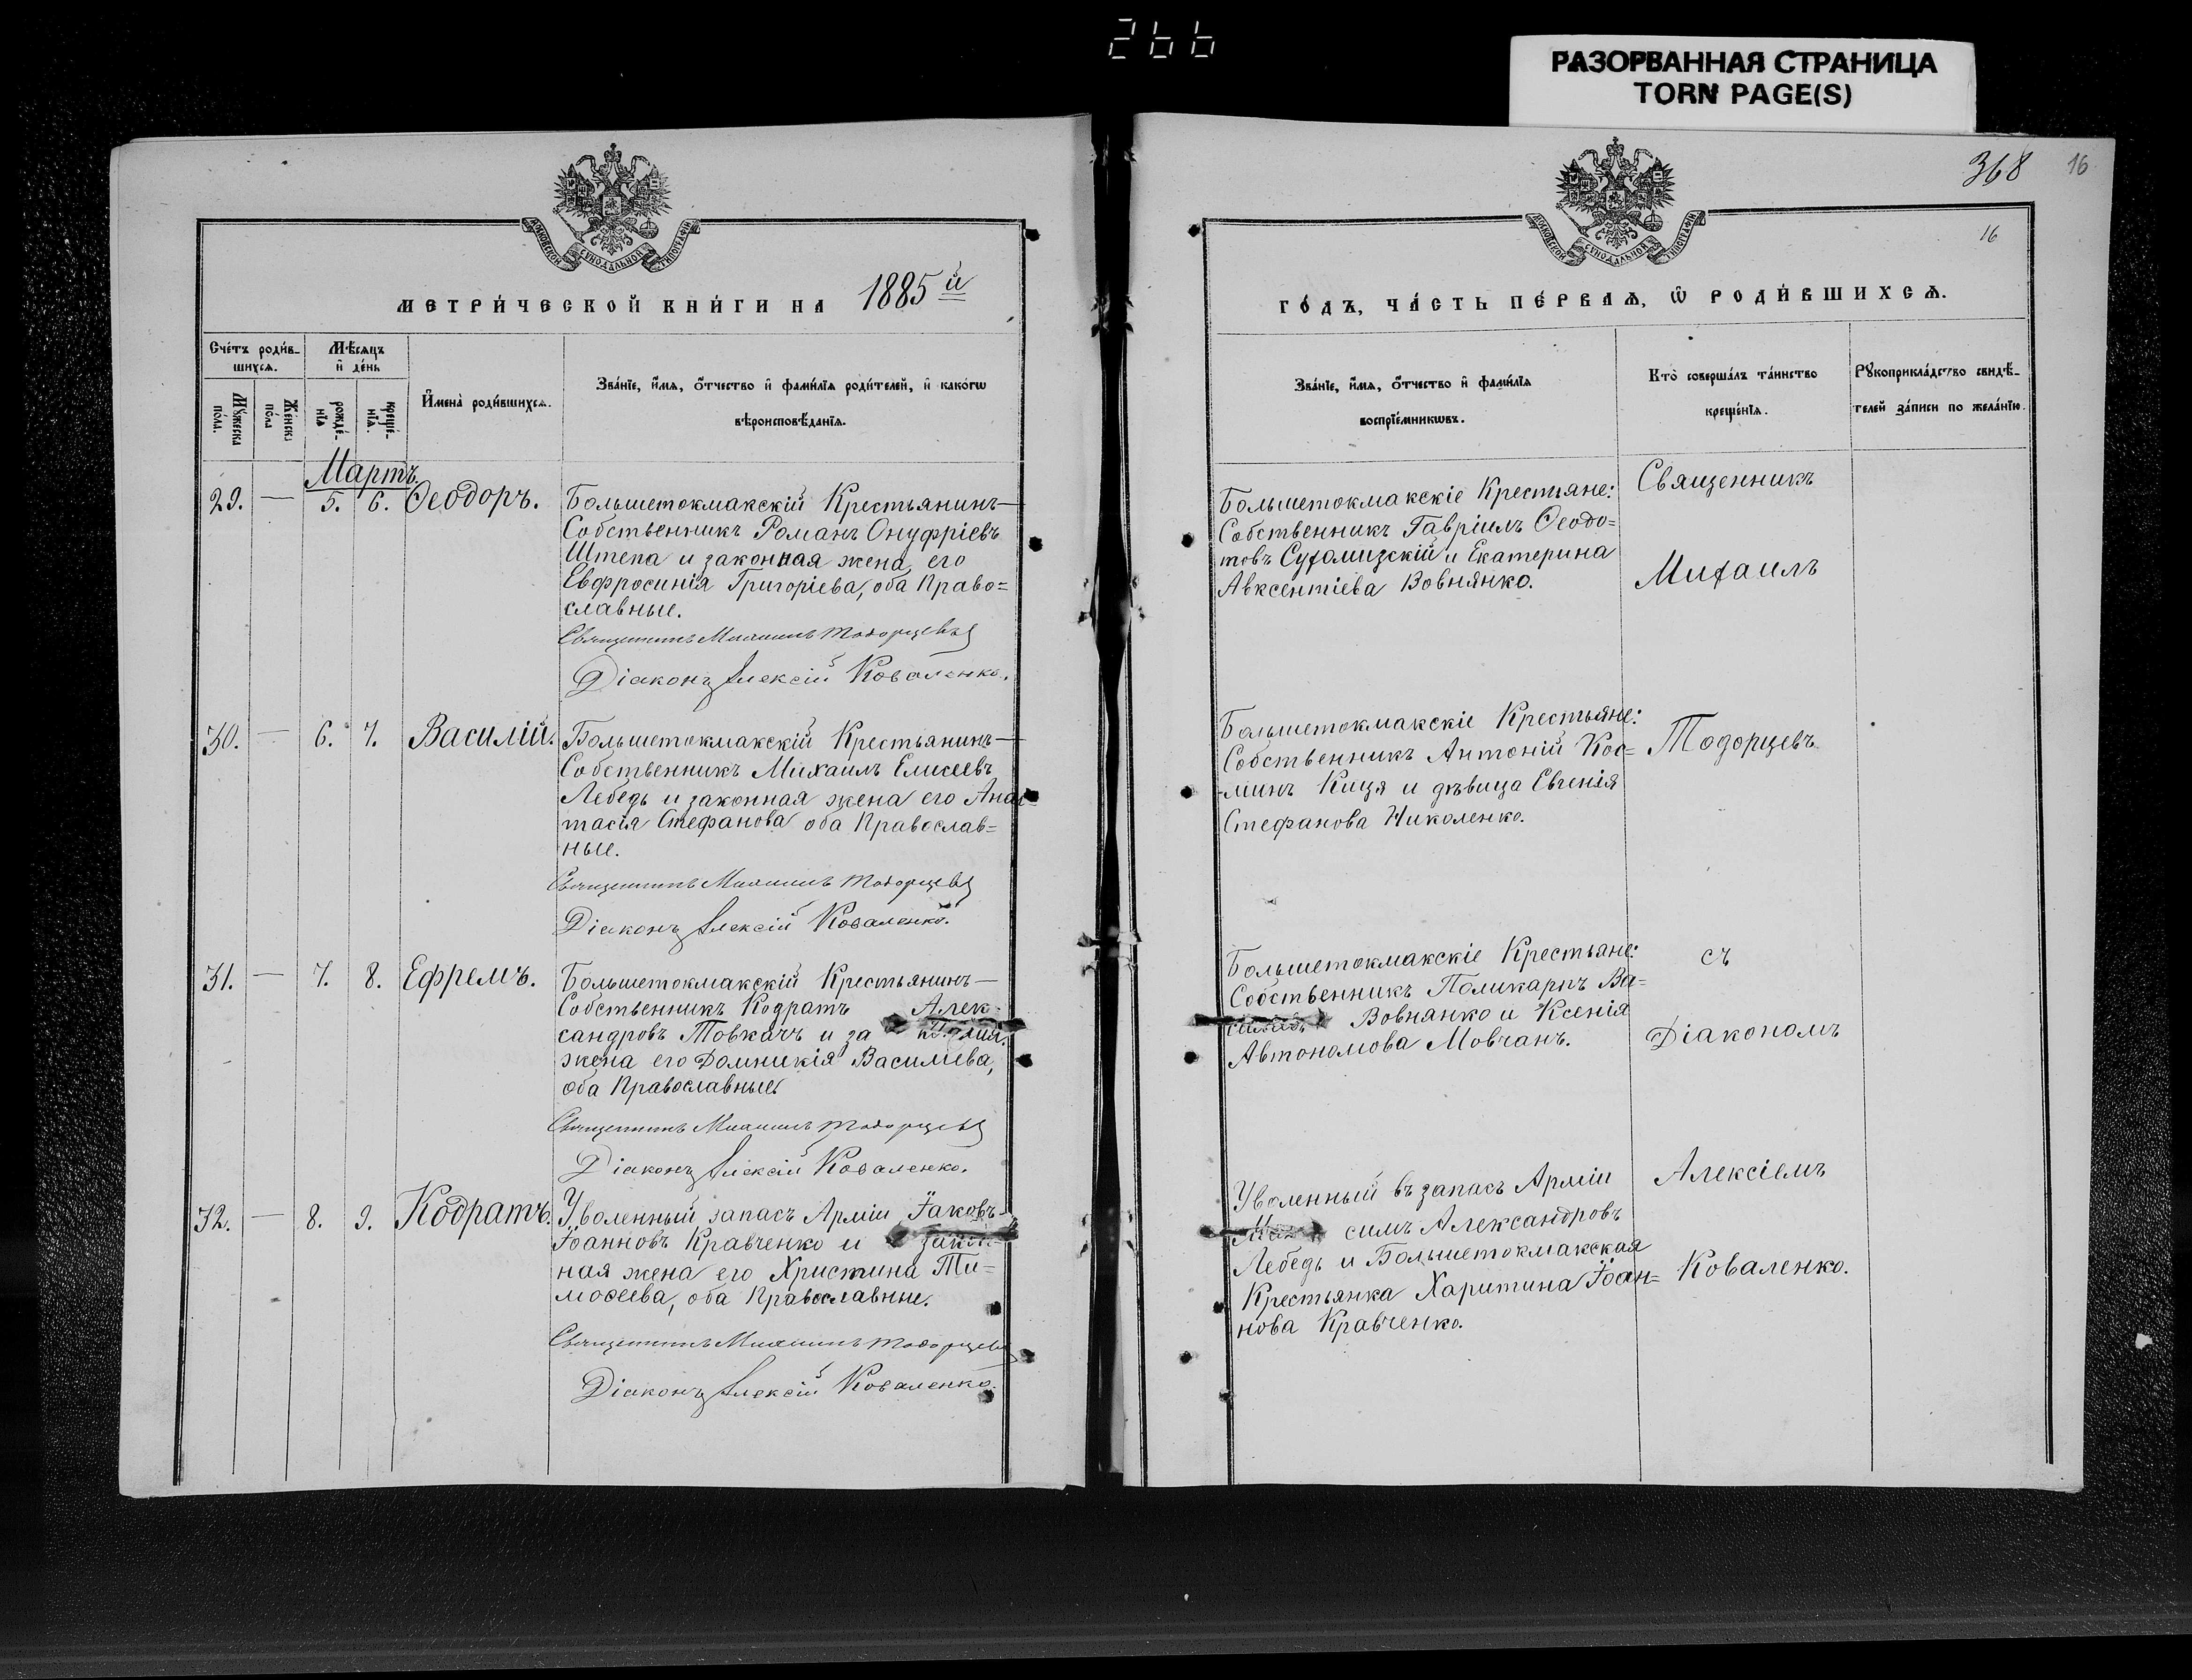 266
РАЗОРВАННАЯ СТРАНИЦА
TORN PAGE(S)
МОСКОВСКОЙ СѴНОДАЛЬНОЙ ТИПОГРАФІИ
МЕТРИ́ЧЕСКОЙ КНИ́ГИ НА 1885й
Сче́тъ роди́в-
шихсѧ.
Мѣ́сѧцъ
и҆ де́нь
Мꙋ́жеска
по́ла.
Же́нска
по́ла
рожде́-
нїѧ
креще́-
нїѧ.
И҆мена̀ роди́вшихсѧ.
Зва́нїе, и҆́мѧ, ѻ҆́тчество и҆ фами́лїѧ роди́телей, и҆ како́гѡ
вѣроисповѣ́данїѧ.
Мартъ
29. — 5. 6. Ѳеодоръ.
Большетокмакскій Крестьянинъ—
Собственникъ Романъ Онуфріевъ
Штепа и законная жена его
Евфросинія Григоріева, оба Право=
славные.
Священникъ Михаилъ Тодорцевъ
Діаконъ Алексій Коваленко.
30. — 6. 7. Василій.
Большетокмакскій Крестьянинъ—
Собственникъ Михаилъ Елисеевъ
Лебедь и законная жена его Анас
тасія Стефанова оба Православ=
ные.
Священникъ Михаилъ Тодорцевъ
Діаконъ Алексій Коваленко.
31. — 7. 8. Ефремъ.
Большетокмакскій Крестьянинъ—
Собственникъ Кодратъ Алек-
сандровъ Товкачъ и за
жена его Домникія Василіева,
оба Православные.
Священникъ Михаилъ Тодорцевъ
Діаконъ Алексій Коваленко.
32. — 8. 9. Кодратъ.
Уволенный запасъ Арміи Іаковъ
Іоанновъ Кравченко и закон-
ная жена его Христина Ти=
моѳеева, оба Православные.
Священникъ Михаилъ Тодорцевъ
Діаконъ Алексій Коваленко.
368 16
МОСКОВСКОЙ СѴНОДАЛЬНОЙ ТИПОГРАФІИ
16
ГО́ДЪ, ЧА́СТЬ ПЕ́РВАѦ, Ѽ РОДИ́ВШИХСѦ.
Зва́нїе, и҆́мѧ, ѻ҆́тчество и҆ фами́лїѧ
воспрїе́мникѡвъ.
Кто̀ соверша́лъ та́инство
креще́нїѧ.
Рꙋкоприкла́дство свидѣ́-
телей за́писи по жела́нїю.
Большетокмакскіе Крестьяне:
Собственникъ Гавріилъ Ѳеодо=
товъ Сухомизскій и Екатерина
Авксентіева Вовнянко.
Священникъ
Михаилъ
Большетокмакскіе Крестьяне:
Собственникъ Антоній Кос=
минъ Кица и дѣвица Евгенія
Стефанова Николенко.
Тодорцевъ
Большетокмакскіе Крестьяне:
Собственникъ Поликарпъ Ва=
Вовнянко и Ксенія
Автономова Мовчанъ.
съ
Діакономъ
Уволенный въ запасъ Арміи
симъ Александровъ
Лебедь и Большетокмакская
Крестьянка Харитина Іоан=
нова Кравченко.
Алексіемъ
Коваленко.